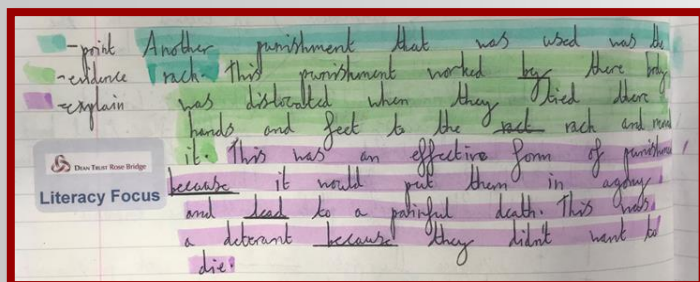 - print Another punishment that was used was the
- evidence rack. This punishment worked by there body
- explain was dislocated when they tied there
hands and feet to the ract rack and
it. This was an effective form of
because it would put them in agony
and lead to a painful death. This was
a deterant because they didn't want to
die.
DEAN TRUST ROSE BRIDGE
Literacy Focus